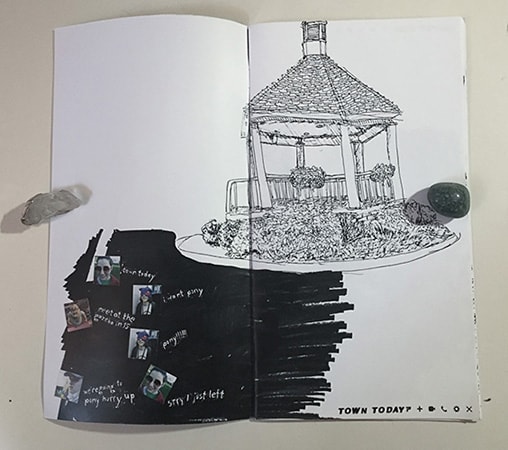 town today
i want pony
meet at the
gazebo in 15
pony!!!!!
we're going to
pony hurry up
sorry I just left
TOWN TODAY?